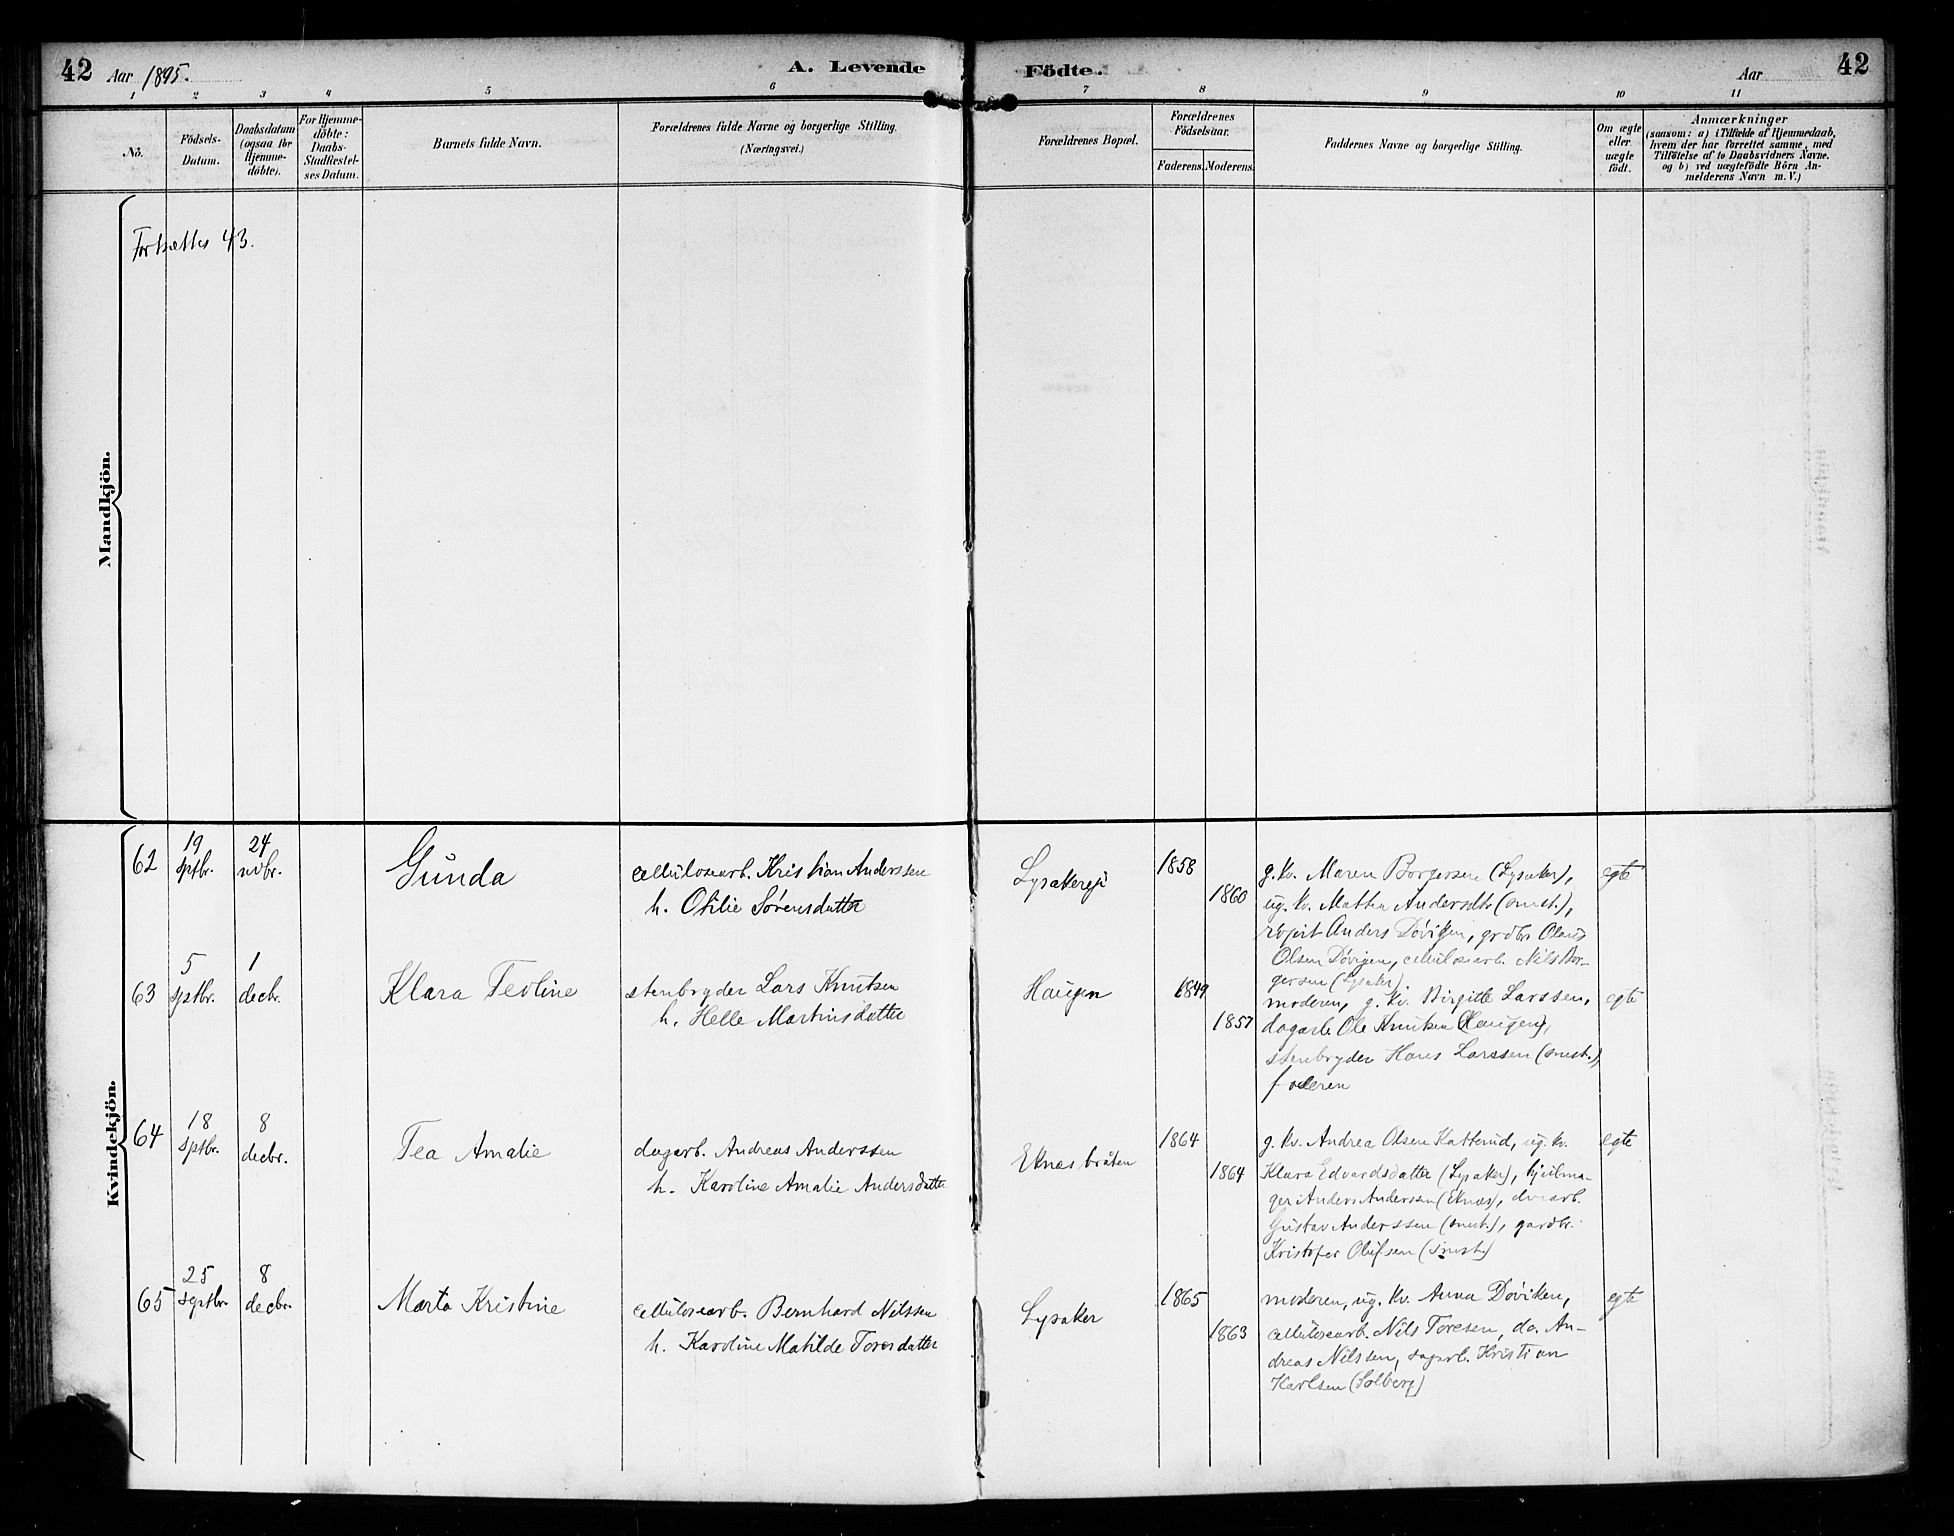 42 Aar 1895. A. Levende Födte. Aar 42
1 2 3 4 5 6 7 8 9 10 11
No.
Födsels-
Datum.
Daabsdatum
(ogsaa for
Hjemme-
döbte).
For Hjemme-
döbte:
Daabs-
Stadfæstel-
ses Datum.
Barnets fulde Navn.
Forældrenes fulde Navne og borgerlige Stilling.
(Næringsvei.)
Forældrenes Bopæl.
Forældrenes
Födselsaar.
Faderens. Moderens.
Faddernes Navne og borgerlige Stilling.
Om ægte
eller
uægte
födt.
Anmærkninger
(saasom: a) i Tilfælde af Hjemmedaab,
hvem der har forrettet samme, med
Tilföielse af to Daabsvidners Navne.
og b) ved uægtefödte Börn An-
melderens Navn m. V.)
Mandkjön.
Fortsættes 43.
Kvindekjön.
62
19
sptbr.
24
novbr.
Gunda
cellulosearb. Kristian Anderssen
h. Otilie Sørensdatter
Lysakerejе
1858
1860
g. kv. Maren Borgersen (Lysaker),
ug. kv. Mathea Andersdtr (smst.),
Anders Døviken, grdbr Olaus
Olsen Døviken, cellulosearb. Nils Bor-
gersen (Lysaker)
egte
63
5
sptbr.
1
decbr.
Klara Teoline
stenbryder Lars Knutsen
h. Helle Martinsdatter
Haugen
1849
1857
moderen, g. kv. Birgitte Larssen,
dagarb. Ole Knutsen (Haugen),
stenbryder Hans Larssen (smst.),
faderen
egte
64
18
sptbr.
8
decbr.
Tea Amalie
dagarb. Andreas Anderssen
h. Karoline Amalie Andersdatter
Eknesbråten
1864
1864
g. kv. Andrea Olsen Katterud, ug. kv.
Klara Edvardsdatter (Lysaker), hjulma-
ger Anders Anderssen (Eknes),
Gustav Anderssen (smst.), gardbr.
Kristofer Olufsen (smst.)
egte
65
25
septbr.
8
decbr.
Marta Kristine
cellulosearb. Bernhard Nilssen
h. Karoline Matilde Toresdatter
Lysaker
1865
1863
moderen, ug. kv. Anna Døviken,
cellulosearb. Nils Toresen, do. An-
dreas Nilssen, dagarb. Kristian
Karlsen (Solberg)
egte